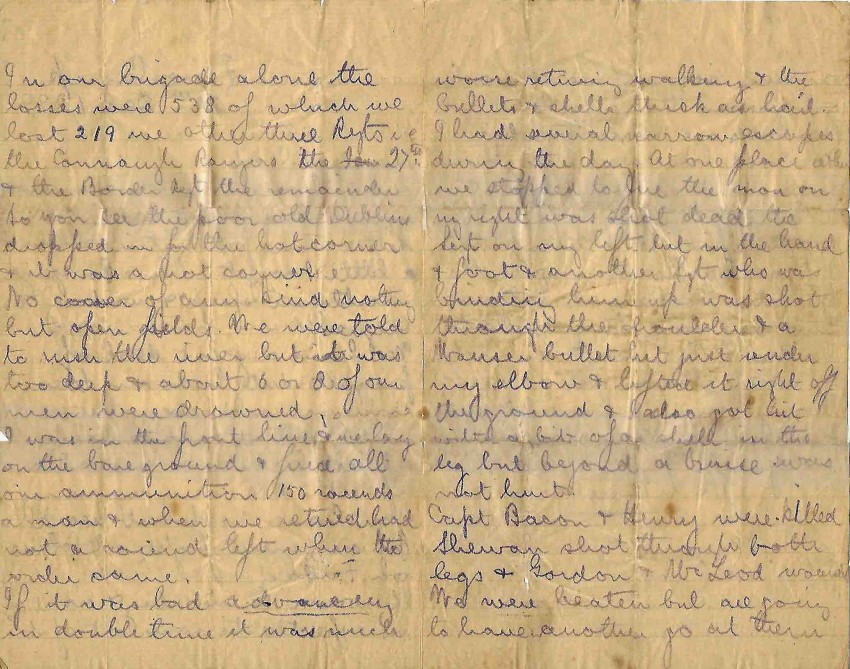 In our brigade alone the
losses were 538 of which we
lost 219 we other three Regts ie
the Connaugh Rangers the 27th
& the Border Regt the remainder
so you see the poor old Dublins
dropped in for the hot corner
& it was a hot corner
No cover of any kind nothing
but open fields. We were told
to rush the river but it was
too deep & about 6 or 8 of our
men were drowned.
I was in the front line & we lay
on the bare ground & fired all
our ammunition 150 rounds
a man & when we retired had
not a round left when the
order came.
If it was bad advancing
in double time it was much
worse retiring walking & the
bullets & shells thick as hail.
I had several narrow escapes
during the day. At one place when
we stopped to fire the man on
my right was shot dead the
Sergt on my left hit in the hand
& foot & another Sgt who was
binding him up was shot
through the shoulder & a
Mauser bullet hit just under
my elbow & lifted it right off
the ground & also got hit
with a bit of a shell in the
leg but beyond a bruise was
not hurt.
Capt Bacon & Henry were killed
Shewan shot through both
legs & Gordon & McLeod wounded
We were beaten but are going
to have another go at them